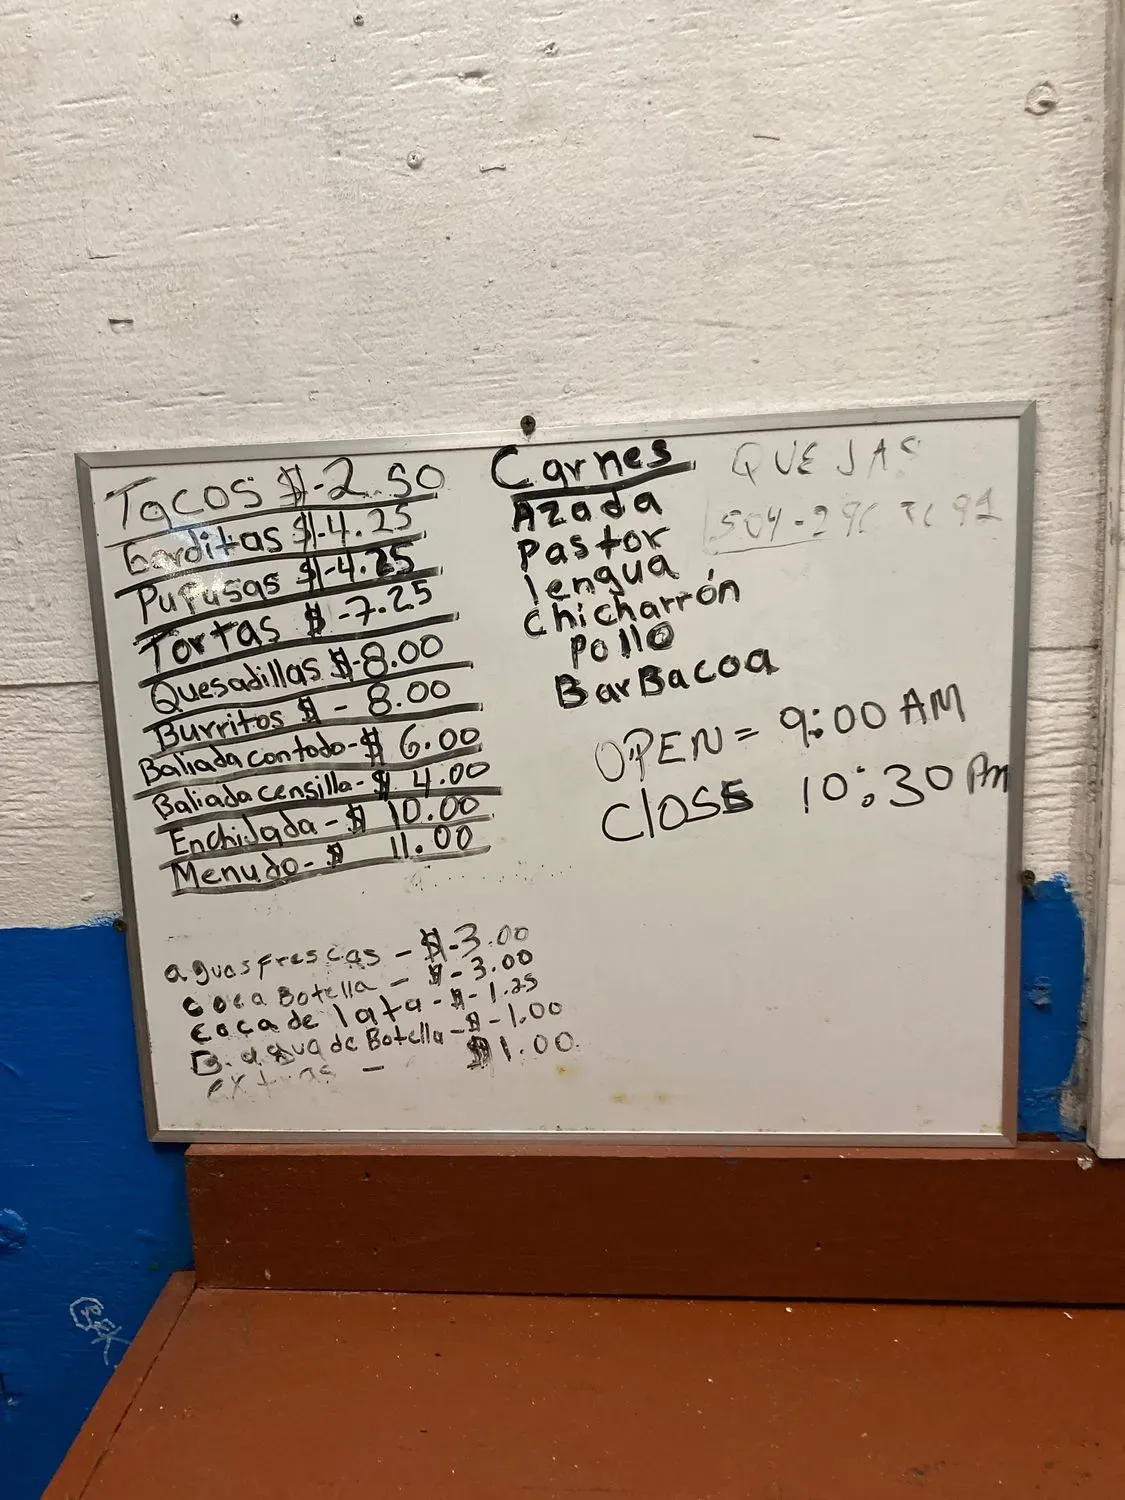 Tacos $-2.50
Gorditas $-4.25
Pupusas $-4.25
Tortas $-7.25
Quesadillas $-8.00
Burritos $ - 8.00
Baliada con todo-$ 6.00
Baliada censilla-$ 4.00
Enchilada - $ 10.00
Menudo-$ 11.00
aguas frescas - $-3.00
coca Botella - $-3.00
coca de lata-$-1.25
B. agua de Botella-$-1.00
extras - $1.00
Carnes
Azada
Pastor
lengua
chicharrón
Pollo
BarBacoa
QUEJAS
OPEN = 9:00 AM
ClosE 10:30 Pm